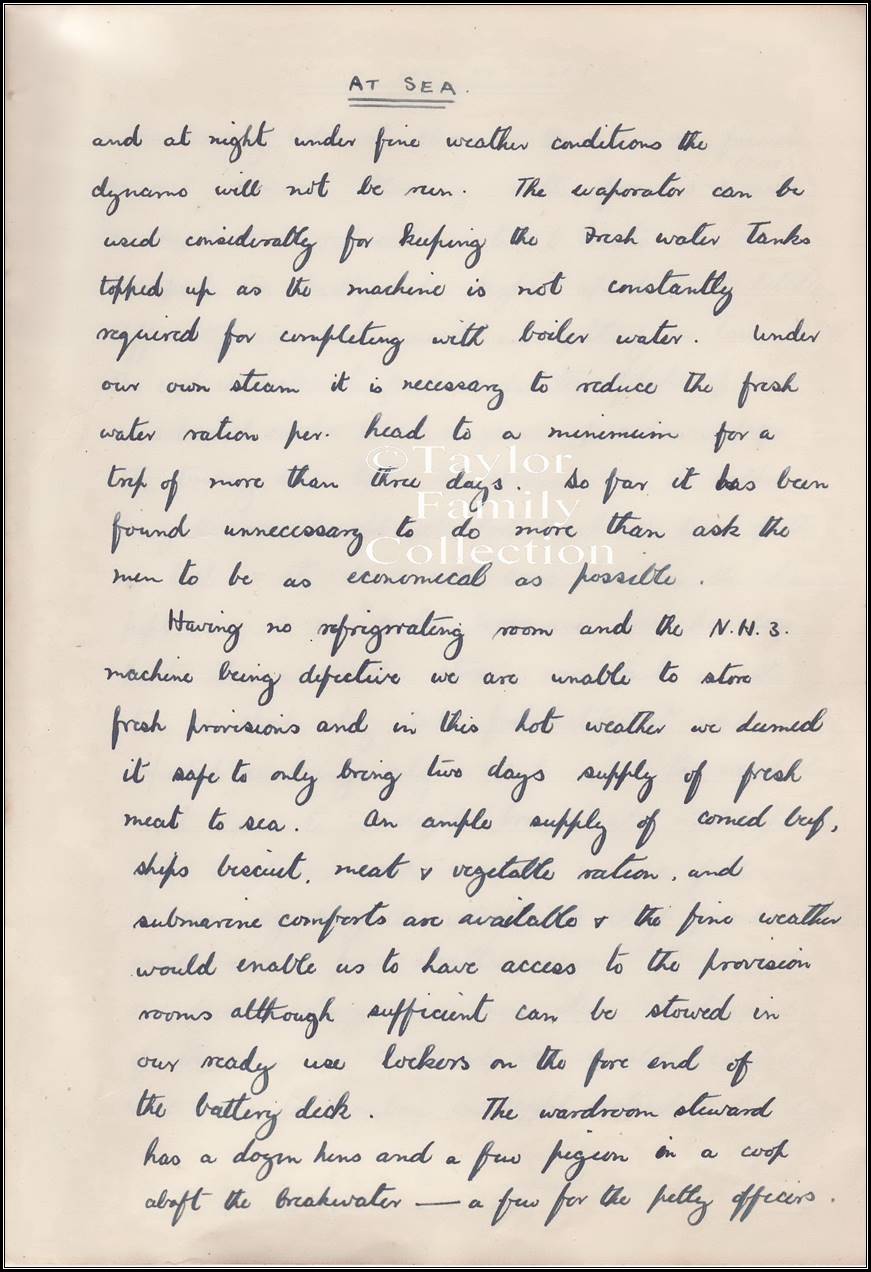 AT SEA.
and at night under fine weather conditions the
dynamo will not be run. The evaporator can be
used considerably for keeping the Fresh water Tanks
topped up as the machine is not constantly
required for completing with boiler water. Under
our own steam it is necessary to reduce the fresh
water ration per. head to a minimum for a
trip of more than three days. So far it has been
found unnecessary to do more than ask the
men to be as economical as possible.
©Taylor
Family
Collection
Having no refrigerating room and the N.H.3.
machine being defective we are unable to store
fresh provisions and in this hot weather we deemed
it safe to only bring two days supply of fresh
meat to sea. An ample supply of corned beef,
ships biscuit, meat & vegetable ration, and
submarine comforts are available & the fine weather
would enable us to have access to the provision
rooms although sufficient can be stowed in
our ready use lockers on the fore end of
the battery deck. The wardroom steward
has a dozen hens and a few pigeon in a coop
abaft the breakwater — a few for the petty officers.